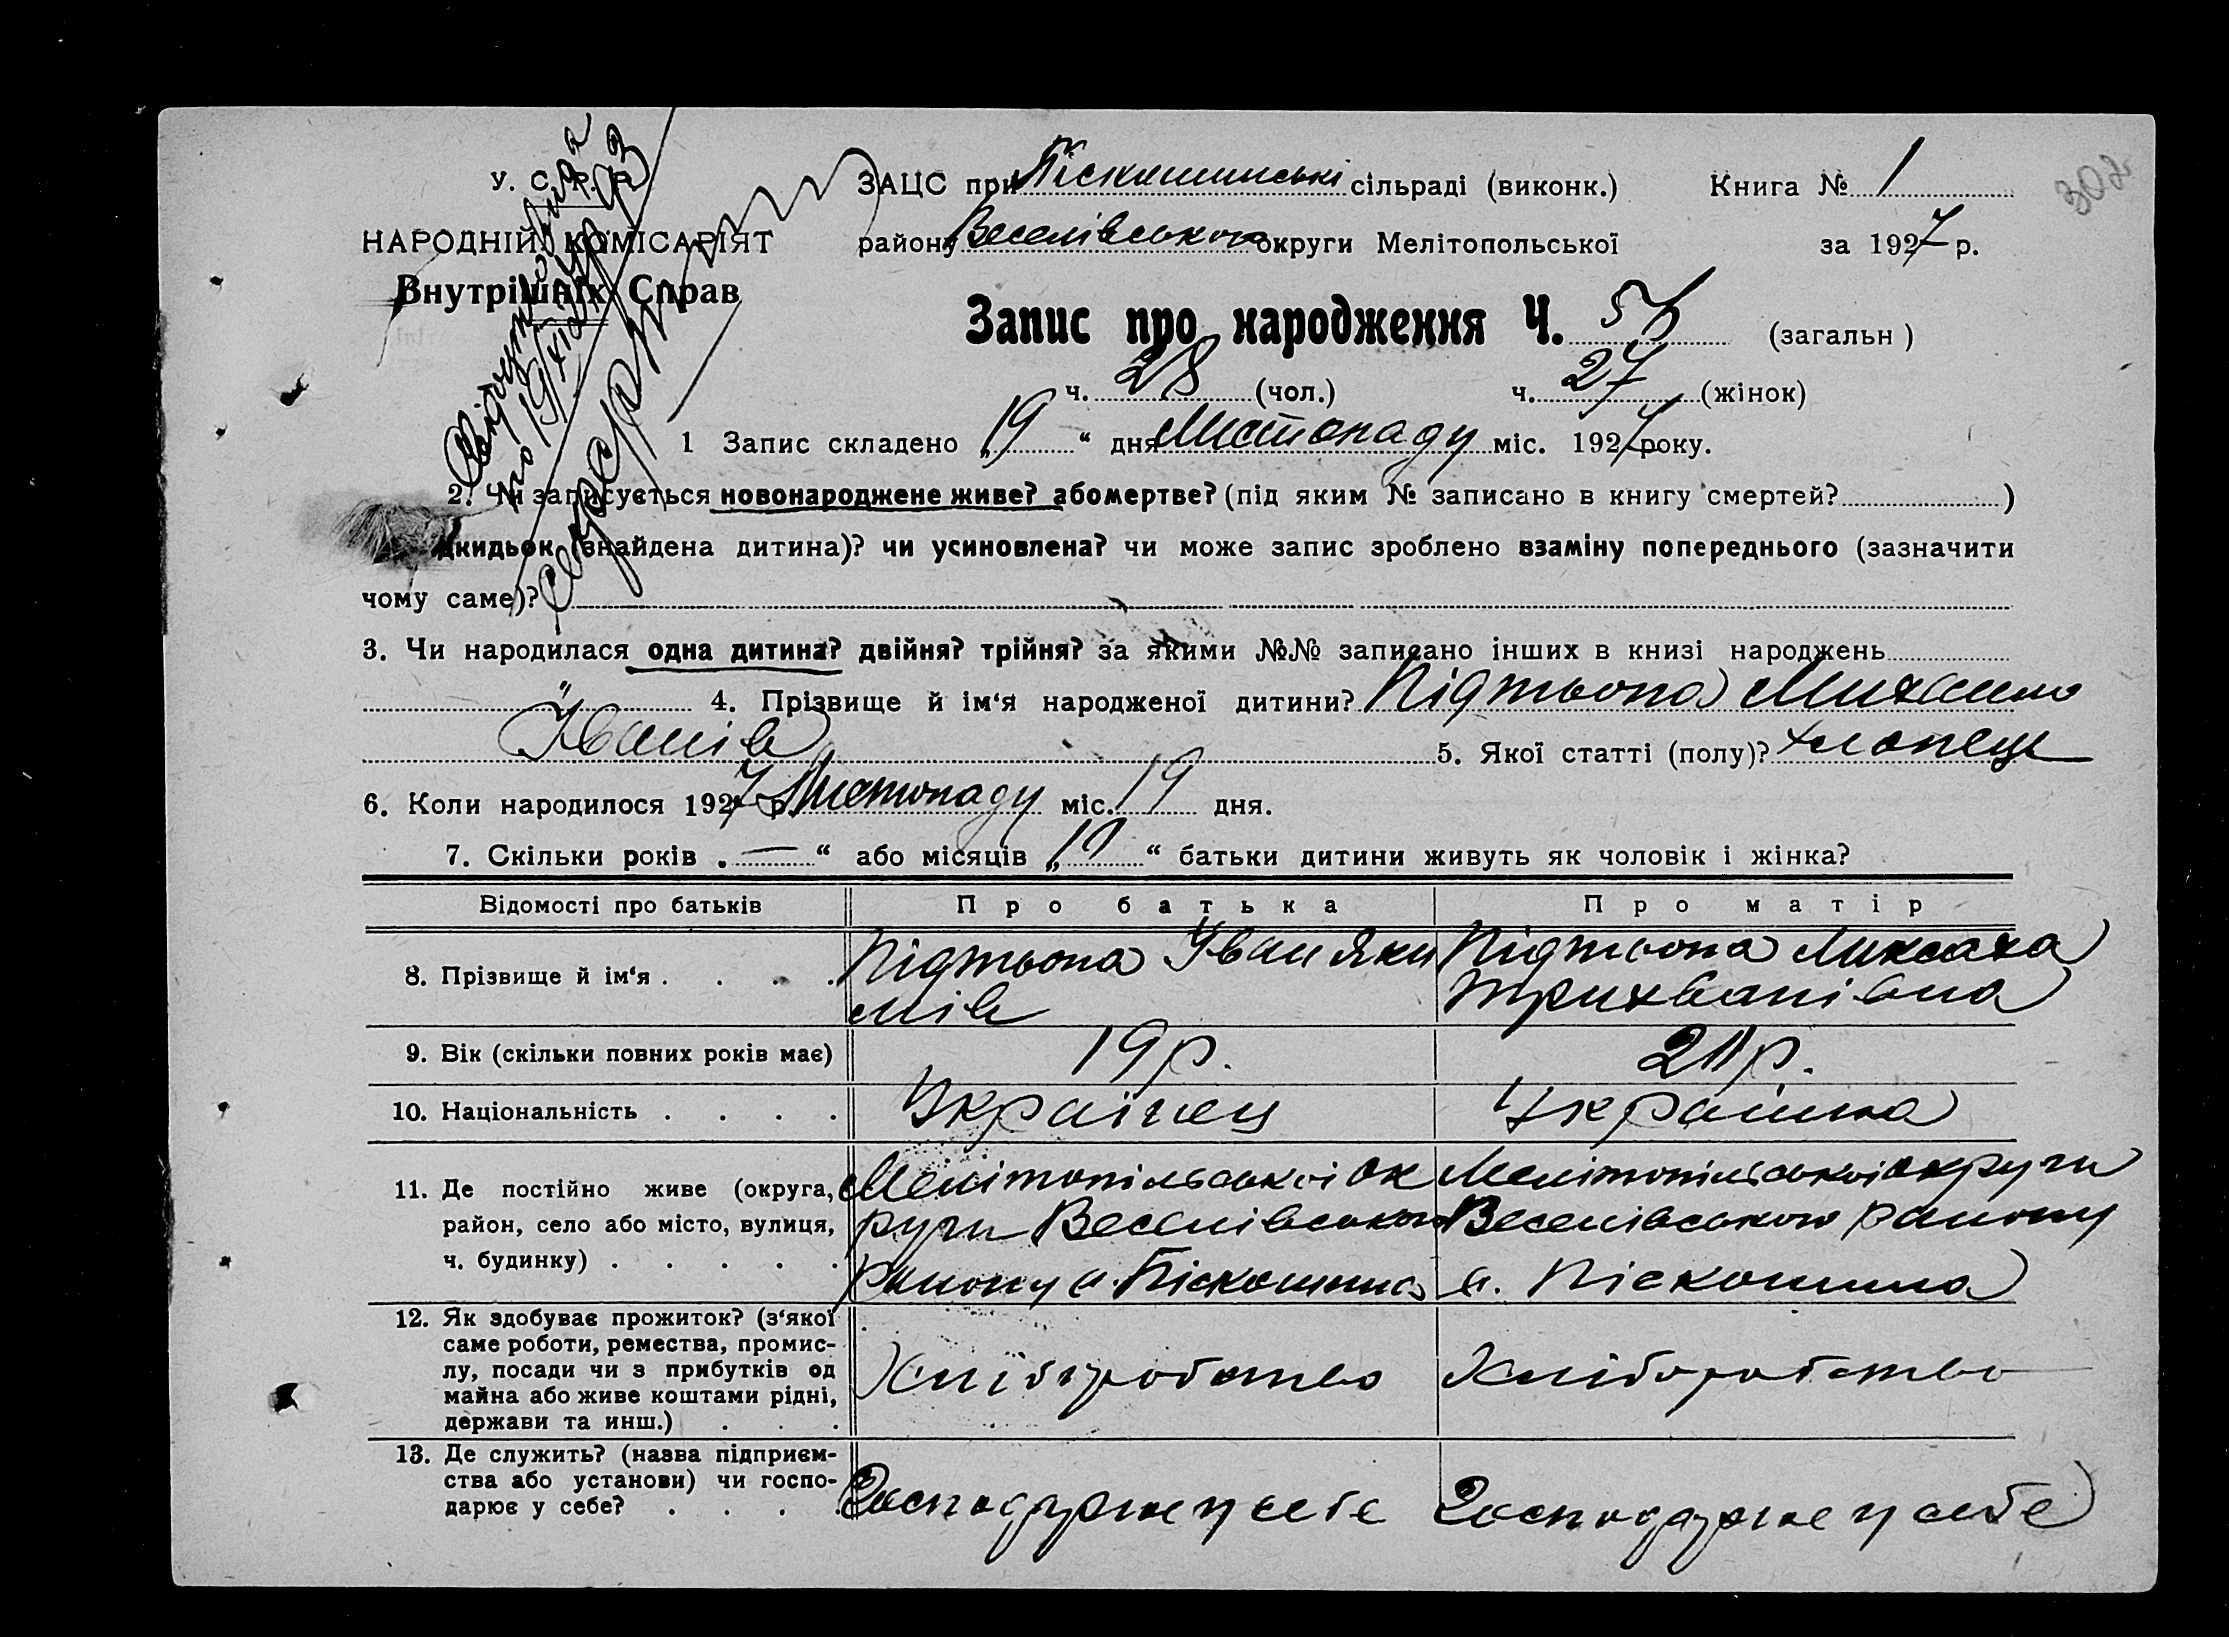 302
У. С. Р. Р.
ЗАЦС при Піскошинські сільраді (виконк.) Книга № 1
НАРОДНІЙ КОМІСАРІЯТ
району Веселівського округи Мелітопольської за 1927 р.
Внутрішніх Справ
Запис про народження Ч. 55 (загальн)
ч. 28 (чол.) ч. 27 (жінок)
1 Запис складено „19“ дня Листопаду міс. 1927 року.
2. Чи записується новонароджене живе? або мертве? (під яким № записано в книгу смертей? )
дкидьок (знайдена дитина)? чи усиновлена? чи може запис зроблено взаміну попереднього (зазначити
чому саме)?
3. Чи народилася одна дитина? двійня? трійня? за якими №№ записано інших в книзі народжень
4. Прізвище й ім‘я народженої дитини? Підтьопа Михаило
Іванів 5. Якої статті (полу)? хлопець
6. Коли народилося 1927 р. Листопаду міс. 19 дня.
7. Скільки років „—“ або місяців „10“ батьки дитини живуть як чоловік і жінка?
Відомості про батьків Про батька Про матір
8. Прізвище й ім‘я . . . . Підтьопа Іван Яки Підтьопа
мів
9. Вік (скільки повних років має) 19 р. 21 р.
10. Національність . . . . Українец Українка
11. Де постійно живе (округа, Мелітопільської Ок Мелітопільської округи
район, село або місто, вулиця, руги Веселівського Веселівського району
ч. будинку) . . . . . району с. Піскошино с. Піскошино
12. Як здобуває прожиток? (з‘якої
саме роботи, ремества, промис-
лу, посади чи з прибутків од Хліборобство Хліборобство
майна або живе коштами рідні,
держави та инш.) . . .
13. Де служить? (назва підприєм-
ства або установи) чи госпо- Господарює у себе Господарює у себе
дарює у себе? . . . .